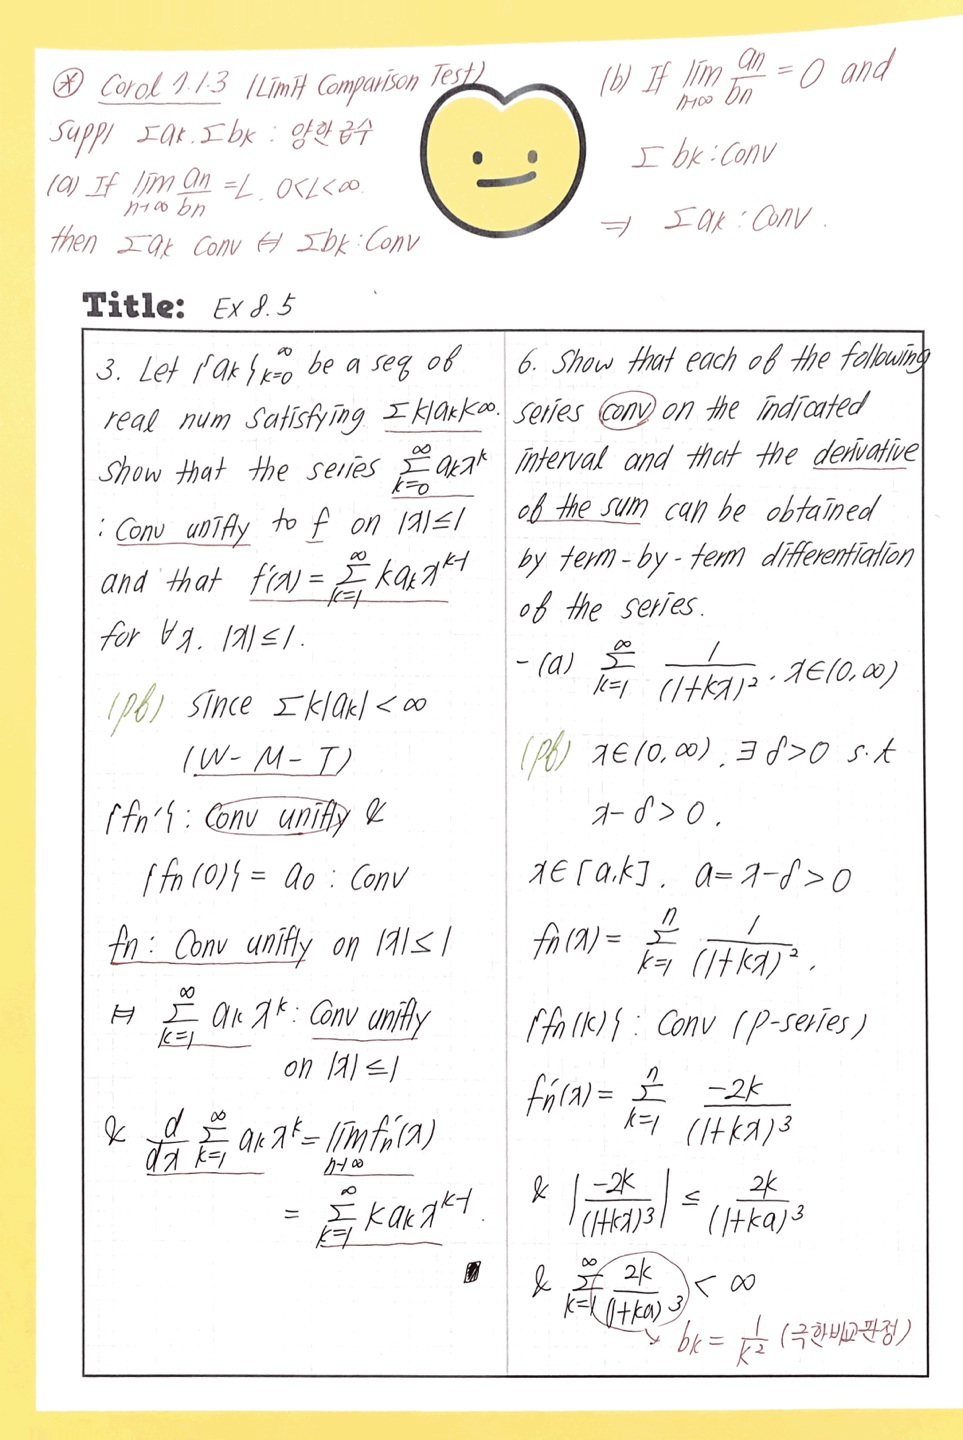 ⊛ Corol 7.1.3 (Limit Comparison Test)
Supp) Σak, Σbk : 양항급수
(a) If lim n→∞ an/bn = L, 0<L<∞
then Σak conv ⇔ Σbk : Conv
(b) If lim n→∞ an/bn = 0 and
Σ bk : Conv
⇒ Σak : Conv.
Title: Ex 8.5
3. Let {ak}∞k=0 be a seq of
real num satisfying Σk|ak|<∞.
show that the series ∞Σk=0 akx^k
: Conv unifly to f on |x|≤1
and that f'(x) = ∞Σk=1 kakx^k-1
for ∀x, |x|≤1.
(pf) since Σk|ak| < ∞
(W-M-T)
{fn'} : Conv unifly &
{fn(0)} = a0 : Conv
fn : Conv unifly on |x|≤1
⇔ ∞Σk=1 akx^k : Conv unifly
on |x|≤1
& d/dx ∞Σk=1 akx^k = lim n→∞ fn'(x)
= ∞Σk=1 kakx^k-1.
6. Show that each of the following
series conv on the indicated
interval and that the derivative
of the sum can be obtained
by term-by-term differentiation
of the series.
-(a) ∞Σk=1 1/(1+kx)^2, x∈(0,∞)
(pf) x∈(0,∞), ∃δ>0 s.t
x-δ>0.
x∈[a,k], a=x-δ>0
fn(x) = nΣk=1 1/(1+kx)^2,
{fn(k)} : Conv (p-series)
fn'(x) = nΣk=1 -2k/(1+kx)^3
& |-2k/(1+kx)^3| ≤ 2k/(1+ka)^3
& ∞Σk=1 2k/(1+ka)^3 < ∞
↘ bk = 1/k^2 (극한비교판정)